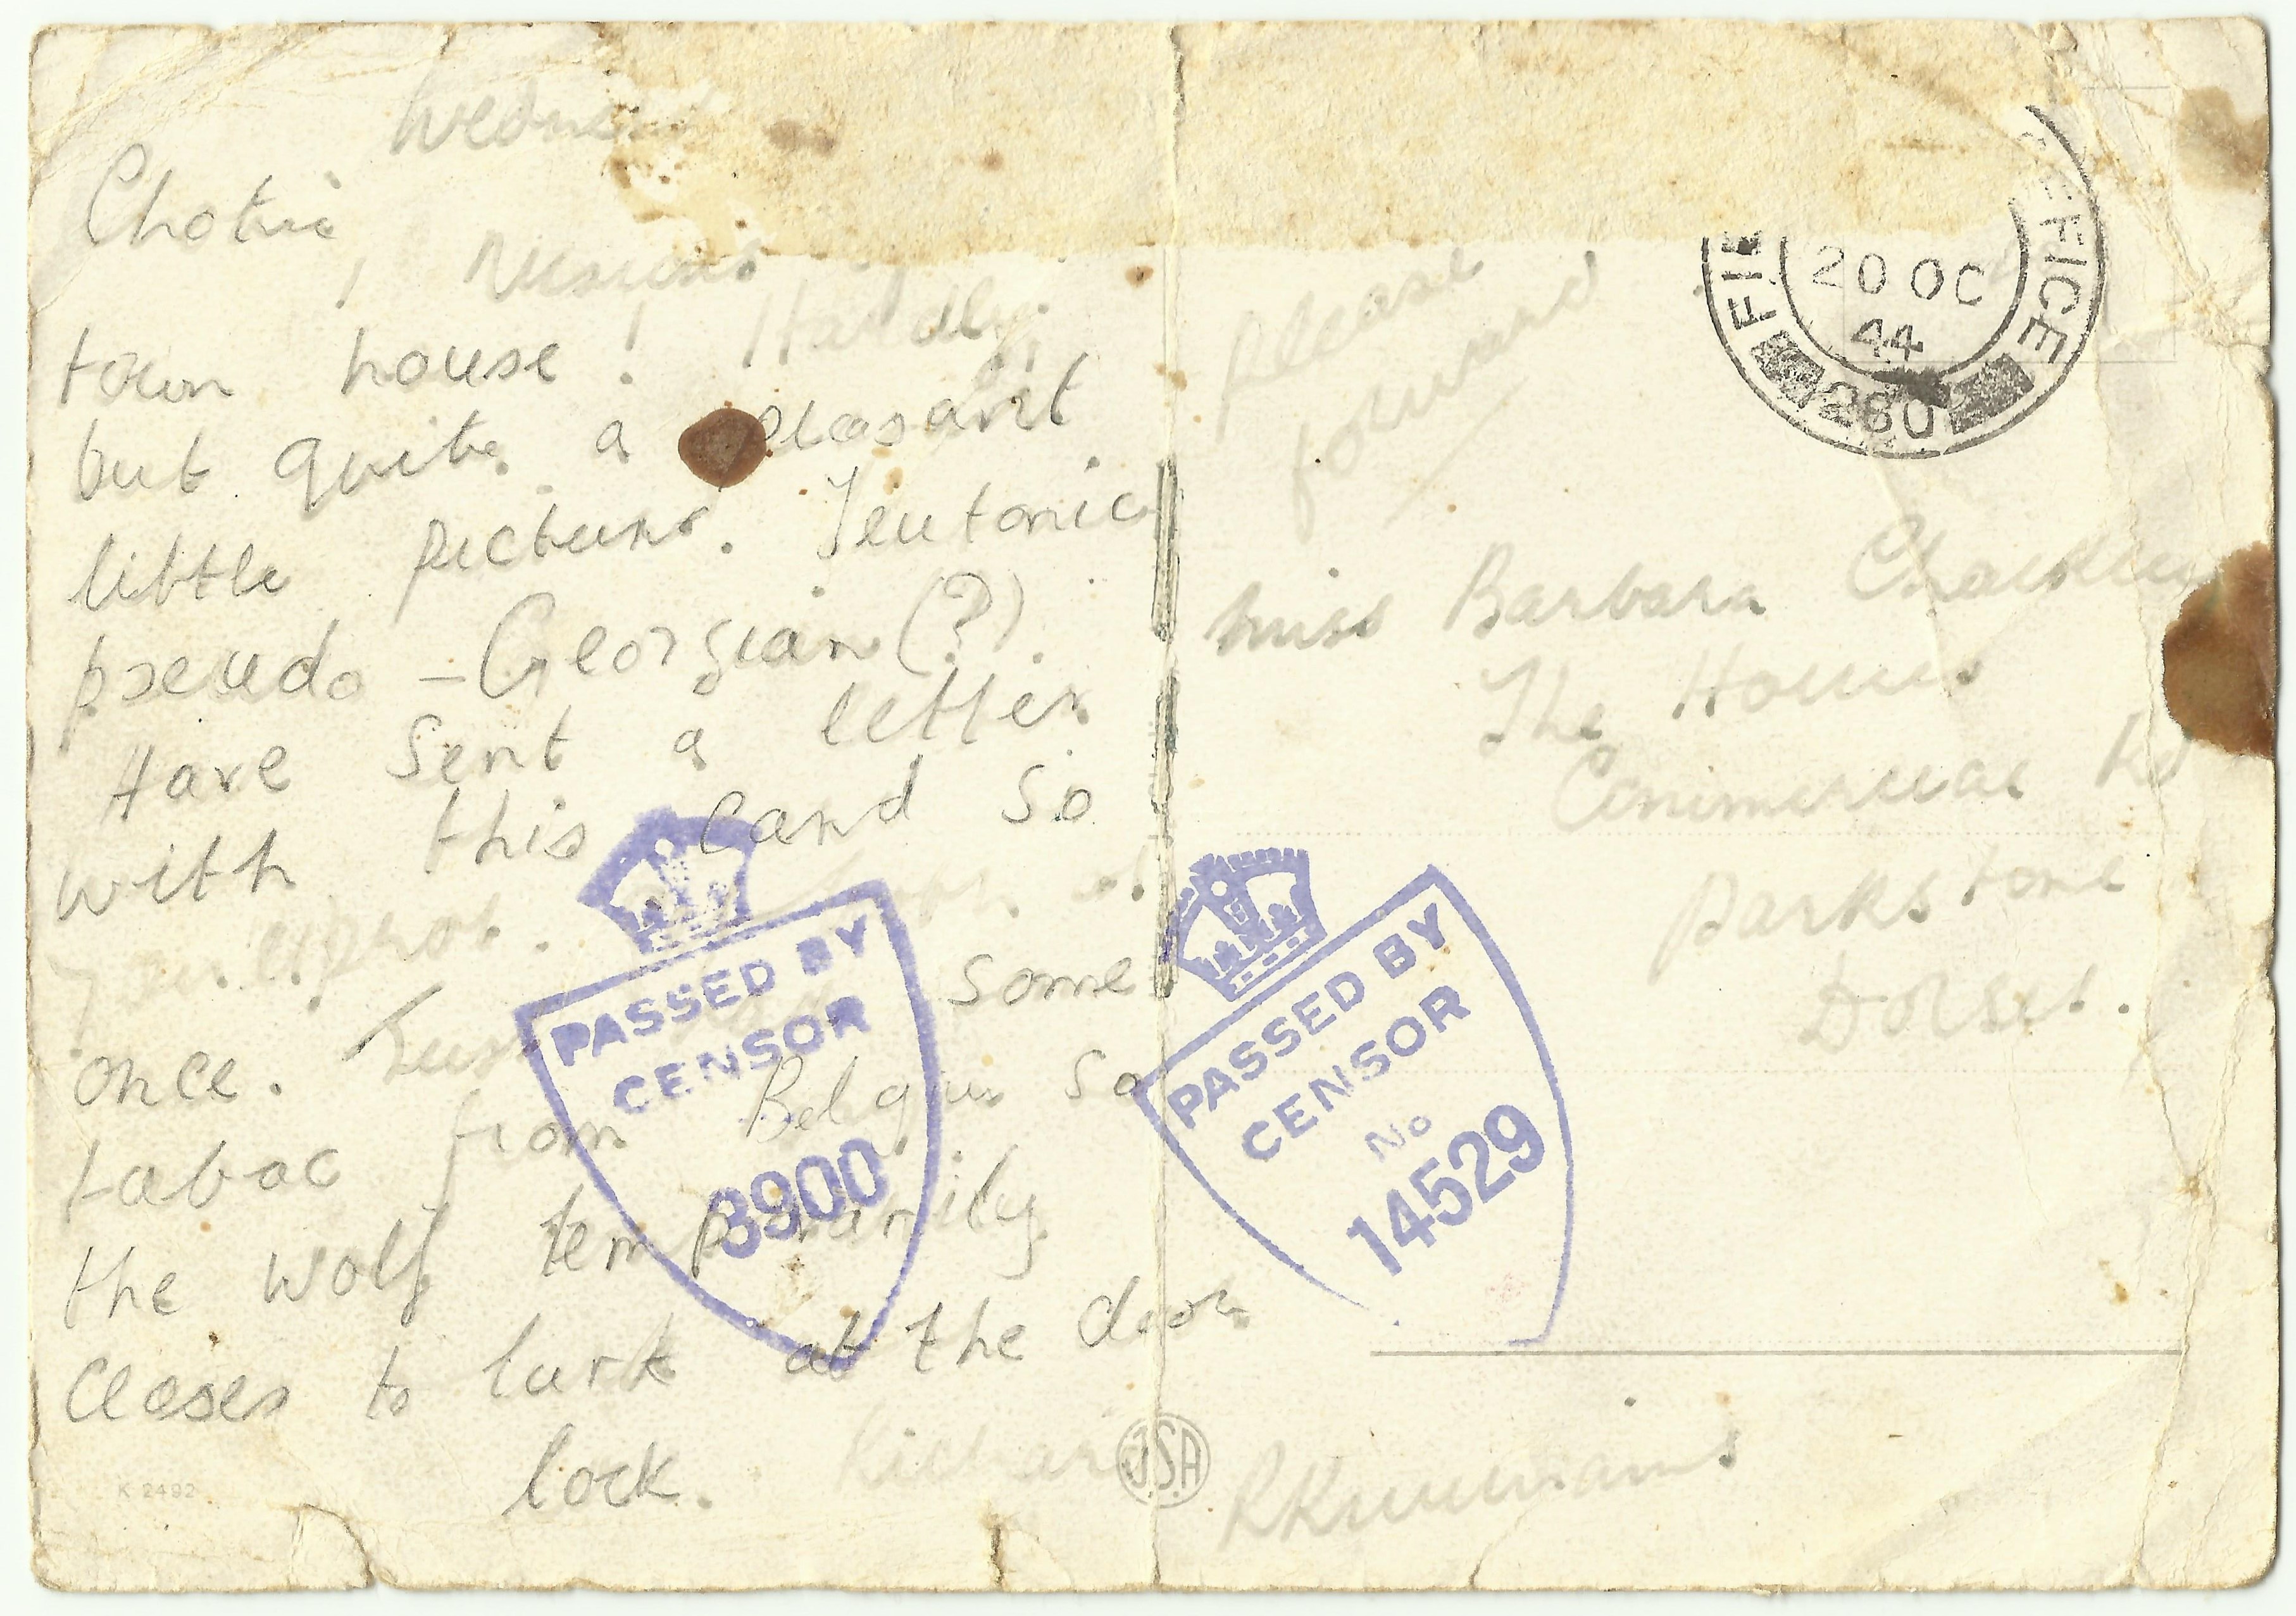 Chotie
town house! Hardly,
but quite a pleasant
little picture. Teutonic
pseudo-Georgian(?).
Have sent a letter
with this card so
once. some
tabac from so
the wolf temporarily
ceases to lurk at the door
lock. Richard
K 2492
JSA
Please
forward
Miss Barbara
The
Commercial Rd
Parkstone
Dorset.
20 OC
44
280
PASSED BY
CENSOR
3900
PASSED BY
CENSOR
No
14529